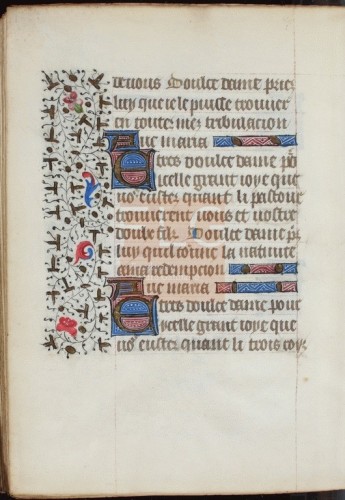 deuons Doulce dame prie
luy que ie le puisse trouuer
en toute mez tribulacion
Aue maria
E tres doulce dame po
icelle grant ioye que
vos eustez quant li pastour
trouuerent vous et vostre
doulz filz Doulce dame pr
luy quil donne la natiuite
a ma redempcion
Aue maria
E tres doulce dame pour
icelle grant ioye que
vos eustez quant li trois roy